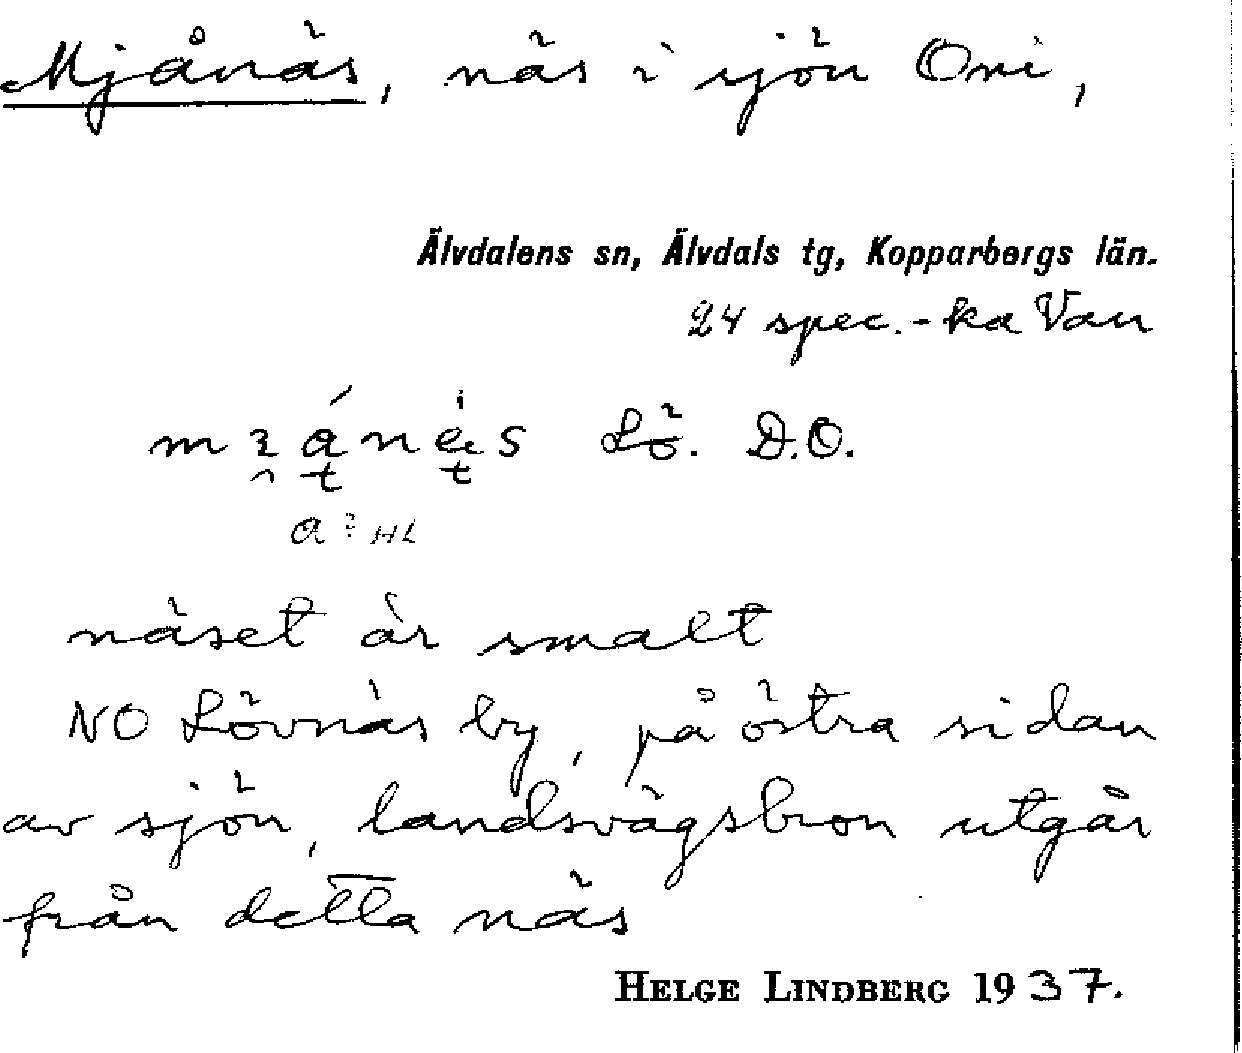 Mjånäs, näs i sjön Ori,
Älvdalens sn, Älvdals tg, Kopparbergs län.
24 spec.-ka Van
Lö. D.O.
a? HL
näset är smalt
NO Lövnäs by, på östra sidan
av sjön, landsvägsbron utgår
från detta näs
HELGE LINDBERG 1937.